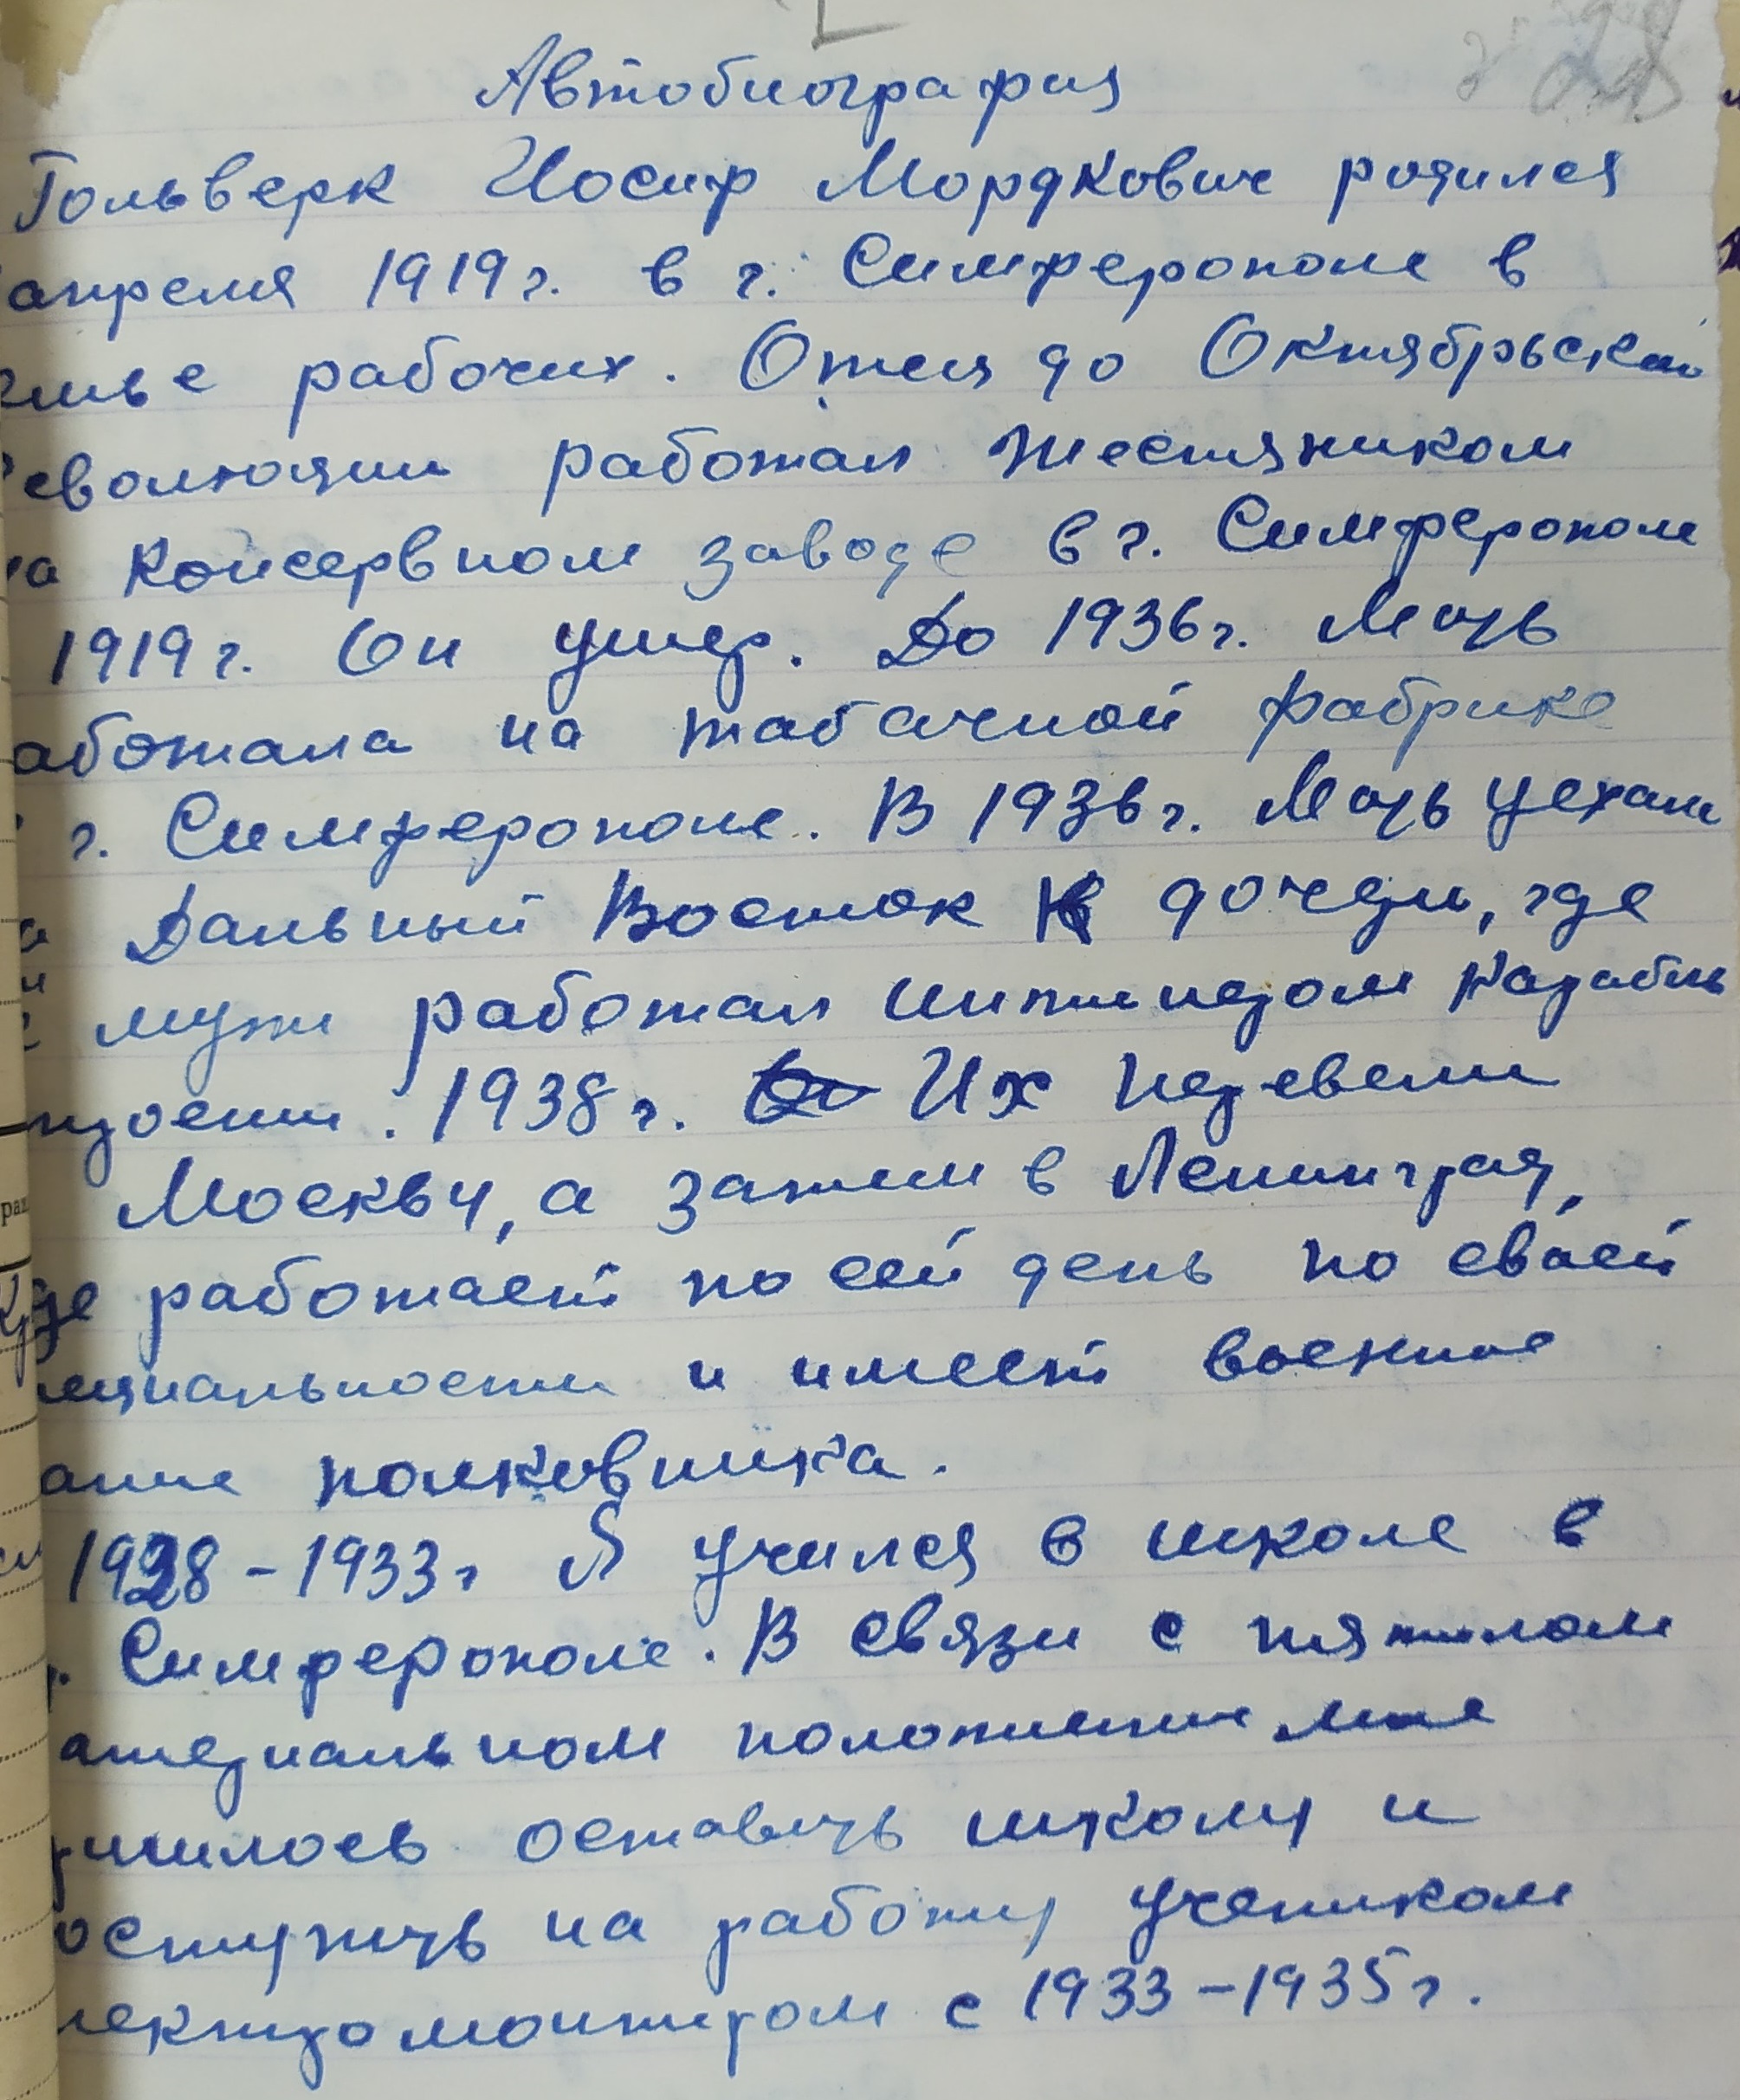 Автобиография
Гольверк Иосиф Мордкович родился
апреля 1919 г. в г. Симферополе в
емье рабочих. Отец до Октябрьской
Революции работал жестяником
на Консервном заводе в г. Симферополе
1919 г. Он умер. До 1936 г. Мать
аботала на табачной фабрике
г. Симферополе. В 1936 г. Мать уехала
а Дальный Восток к дочери, где
муж работал инженером Карабле
троения. 1938 г. Их перевели
Москву, а затем в Ленинград,
где работает по сей день по своей
пециальности и имеет военное
ание полковника.
1928 – 1933 г Я учился в школе в
г. Симферополе. В связи с тяжолом
атериальном положение мне
ришлось оставить школу и
оступить на работу учеником
лектромонтером с 1933 – 1935 г.